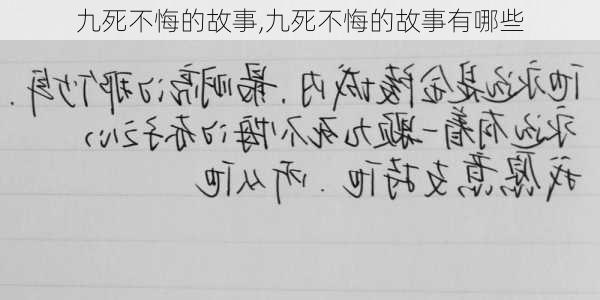 九死不悔的故事,九死不悔的故事有哪些
他永远是金陵城内,最明亮的那个少年.
永远有着一颗九死不悔的赤子之心,
我愿意支持他.听从他